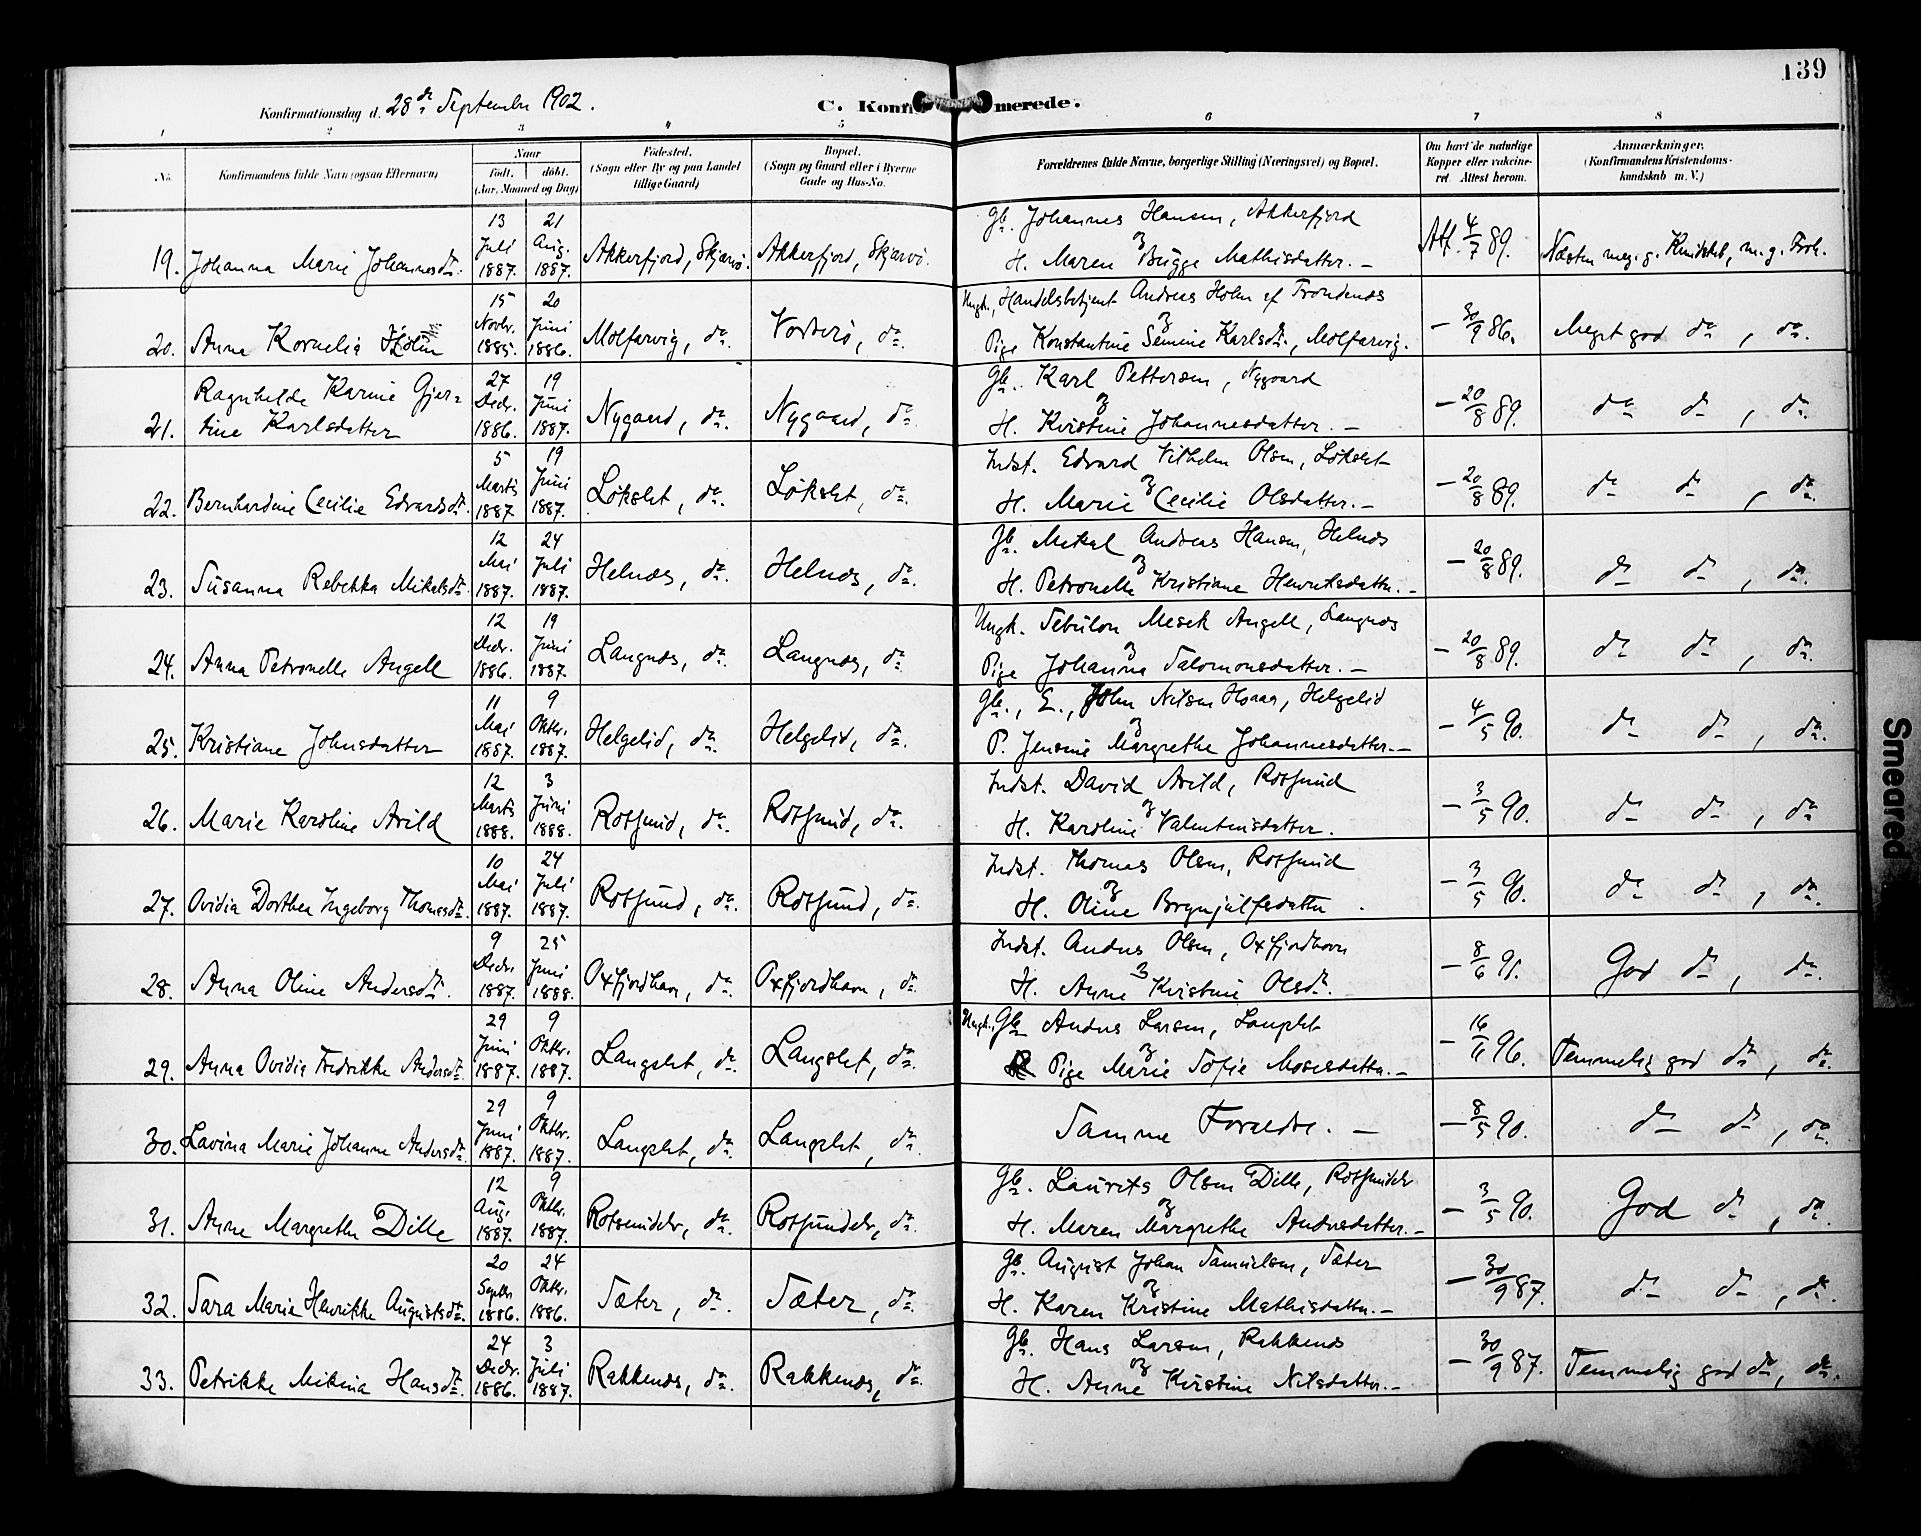 139
Konfirmationsdag d. 28de September 1902.
C. Konfirmerede.
1 2 3 4 5 6 7 8
No.
Konfirmandens fulde Navn (ogsaa Efternavn)
Naar
født. døbt.
(Aar, Maaned og Dag)
Fødested.
(Sogn eller By og paa Landet
tillige Gaard)
Bopæl.
(Sogn og Gaard eller i Byerne
Gade og Hus-No.
Forældrenes fulde Navne, borgerlige Stilling (Næringsvei) og Bopæl.
Om havt de naturlige
Kopper eller vakcine-
ret. Attest herom.
Anmærkninger.
(Konfirmandens Kristendoms-
kundskab m. V.)
19. Johanna Marie Johannesdtr. 13 Juli 1887. 21 Aug. 1887. Akkerfjord, Skjærvø. Akkerfjord, Skjærvø.
Gb. Johannes Hansen, Akkerfjord
og
H. Maren Brigge Mathisdatter. —
Att. 4/7 89. Næsten meg. g. Kundskb, m. g. Forh.
20. Anna Kornelia Holm 15 Novbr. 1885. 20 Juni 1886. Molfarvig, do. Vorterø, do.
Ungk., Handelsbetjent Andreas Holm af Trondenæs
og
Pige Konstantine Semine Karlsdtr., Molfarvig.
— 30/9 86. Meget god do, do.
21. Ragnhilde Karine Gjer-
tine Karlsdatter 27 Decbr. 1886. 19 Juni 1887. Nygaard, do. Nygaard, do.
Gb. Karl Pettersen, Nygaard
og
H. Kristine Johannesdatter. —
— 20/8 89. do do, do.
22. Bernhardine Cecilie Edvardsdtr. 5 Marts 1887. 19 Juni 1887. Løkslet, do. Løkslet, do.
Indst. Edvard Vilhelm Olsen, Løkslet
og
H. Marie Cecilie Olsdatter. —
— 20/8 89. do do, do.
23. Susanna Rebekka Mikalsdtr. 12 Mai 1887. 24 Juli 1887. Helnæs, do. Helnæs, do.
Gb. Mikal Andreas Hansen, Helnæs
og
H. Petronelle Kristiane Henriksdatter. —
— 20/8 89. do do, do.
24. Anna Petronelle Angell 12 Decbr. 1886. 19 Juni 1887. Langnæs, do. Langnæs, do.
Ungk. Sebulon Mesek Angell, Langnæs
og
Pige Johanna Salomonsdatter. —
— 20/8 89. do do, do.
25. Kristiane Johnsdatter 11 Mai 1887. 9 Oktbr. 1887. Helgelid, do. Helgelid, do.
Gb., E., John Nilsen Haar, Helgelid
og
P. Jensine Margrethe Johannesdatter. —
— 4/5 90. do do, do.
26. Marie Karoline Arild 12 Marts 1888. 3 Juni 1888. Rotsund, do. Rotsund, do.
Indst. David Arild, Rotsund
og
H. Karoline Valentinsdatter.
— 3/5 90. do do, do
27. Ovidia Dorthea Ingeborg Thomasdtr. 10 Mai 1887. 24 Juli 1887. Rotsund, do. Rotsund, do.
Indst. Thomas Olsen, Rotsund
og
H. Oline Brynjulfsdatter.
— 3/5 90. do do, do.
28. Anna Oline Andersdtr. 9 Decbr. 1887. 25 Juni 1888. Oxfjordhavn, do. Oxfjordhavn, do.
Indst. Anders Olsen, Oxfjordhavn
og
H. Anne Kristine Olsdtr.
— 8/6 91. God do, do.
29. Anna Ovidia Fredrikke Andersdtr. 29 Juni 1887. 9 Oktbr. 1887. Langslet, do. Langslet, do.
Ungk., Gb. Anders Larsen, Langslet
og
Pige Marie Sofie Mosesdatter. —
— 16/6 96. Temmelig god do, do.
30. Lavina Marie Johanne Andersdtr. 29 Juni 1887. 9 Oktbr. 1887. Langslet, do. Langslet, do.
Samme Forældre. —
— 8/5 90. do do, do.
31. Anne Margrethe Dille 12 Aug. 1887. 9 Oktbr. 1887. Rotsundelv, do. Rotsundelv, do.
Gb. Laurits Olsen Dille, Rotsundelv
og
H. Maren Margrethe Andersdatter. —
— 3/5 90. God do, do.
32. Sara Marie Henrikke Augustsdtr. 20 Septbr. 1886. 24 Oktbr. 1886. Sæter, do. Sæter, do.
Gb. August Johan Samuelsen, Sæter
og
H. Karen Kristine Mathisdatter. —
— 30/9 87. do do, do.
33. Petrikke Mikina Hansdtr. 24 Decbr. 1886. 3 Juli 1887. Rakkenæs, do. Rakkenæs, do.
Gb. Hans Larsen, Rakkenæs
og
H. Anne Kirstine Nilsdatter. —
— 30/9 87. Temmelig god do, do.
Smeared